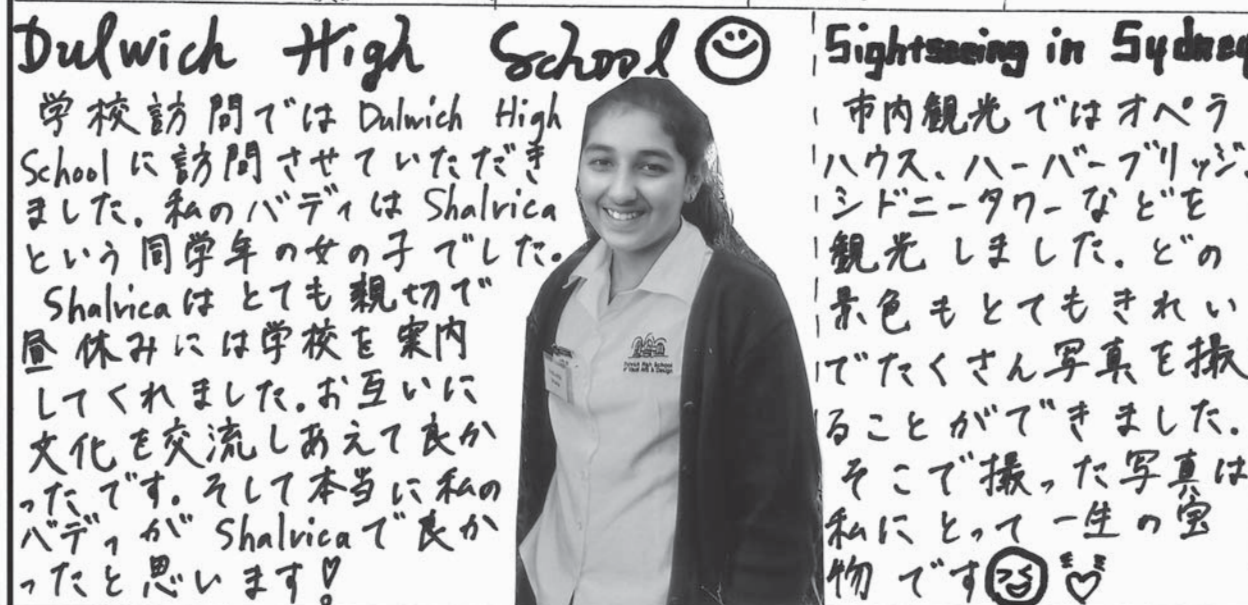 Dulwich High School
学校訪問ではDulwich High
Schoolに訪問させていただき
ました。私のバディはShalvica
という同学年の女の子でした。
Shalvicaはとても親切で
昼休みには学校を案内
してくれました。お互いに
文化を交流しあえて良か
ったです。そして本当に私の
バディがShalvicaで良か
ったと思います!
Dulwich High School
of Visual Arts & Design
Sightseeing in Sydney
市内観光ではオペラ
ハウス、ハーバーブリッジ、
シドニータワーなどを
観光しました。どの
景色もとてもきれい
でたくさん写真を撮
ることができました。
そこで撮った写真は
私にとって一生の宝
物です